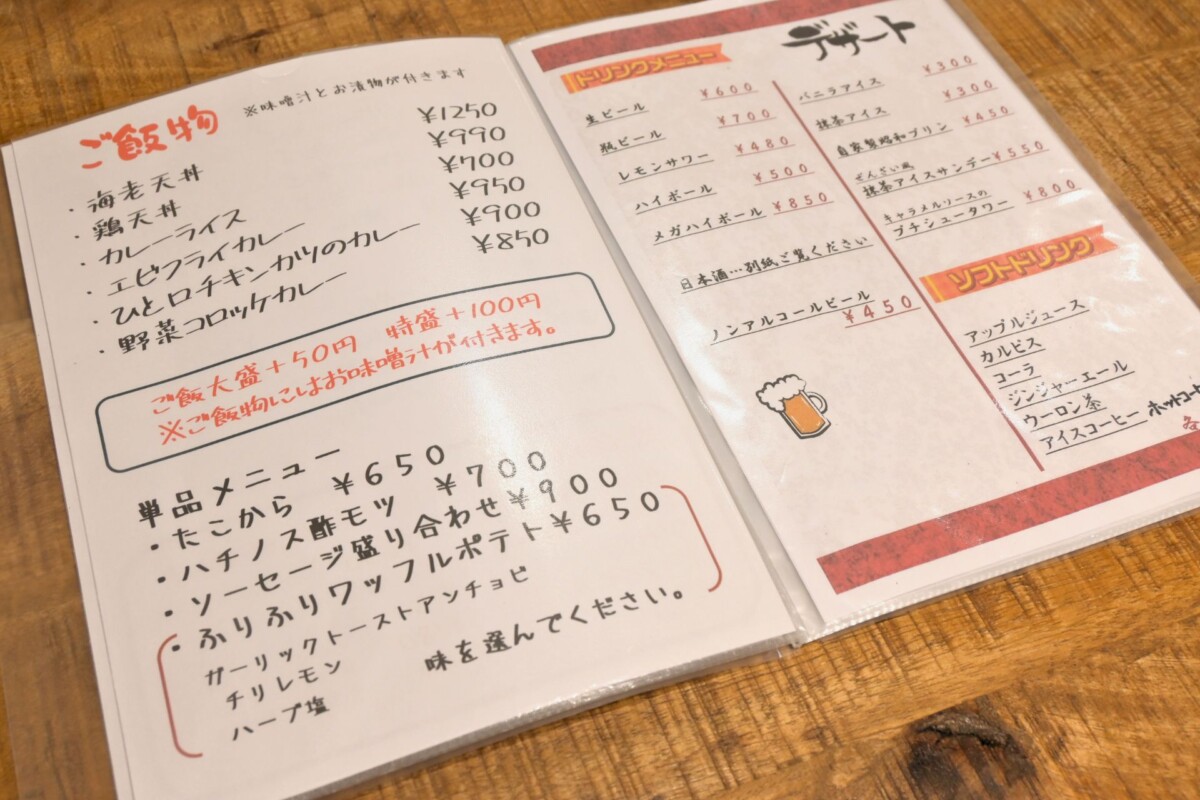 ご飯物 ※味噌汁とお漬物が付きます
・海老天丼 ¥1250
・鶏天丼 ¥990
・カレーライス ¥700
・エビフライカレー ¥950
・ひと口チキンカツのカレー ¥900
・野菜コロッケカレー ¥850
ご飯大盛+50円 特盛+100円
※ご飯物にはお味噌汁が付きます。
単品メニュー
・たこから ¥650
・ハチノス酢モツ ¥700
・ソーセージ盛り合わせ¥900
・ふりふりワッフルポテト¥650
ガーリックトーストアンチョビ
チリレモン
ハーブ塩
味を選んでください。
ドリンクメニュー
生ビール ¥600
瓶ビール ¥700
レモンサワー ¥480
ハイボール ¥500
メガハイボール ¥850
日本酒…別紙ご覧ください
ノンアルコールビール
¥450
デザート
バニラアイス ¥300
抹茶アイス ¥300
自家製昭和プリン ¥450
ぜんざい風
抹茶アイスサンデー¥550
キャラメルソースの
プチシュータワー ¥800
ソフトドリンク
アップルジュース
カルピス
コーラ
ジンジャーエール
ウーロン茶
アイスコーヒー